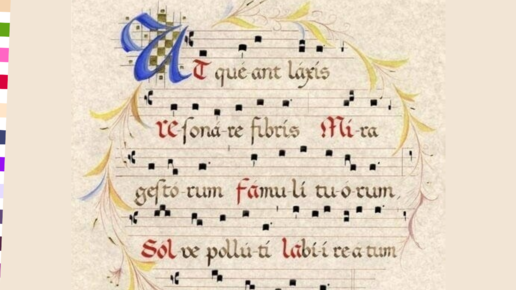 UT qué ant láxis
re soná-re fibris Mi-ra
gestó-rum fámu-lí tu-o-rum,
Sol-ve pollú-ti lábi-i re a tum